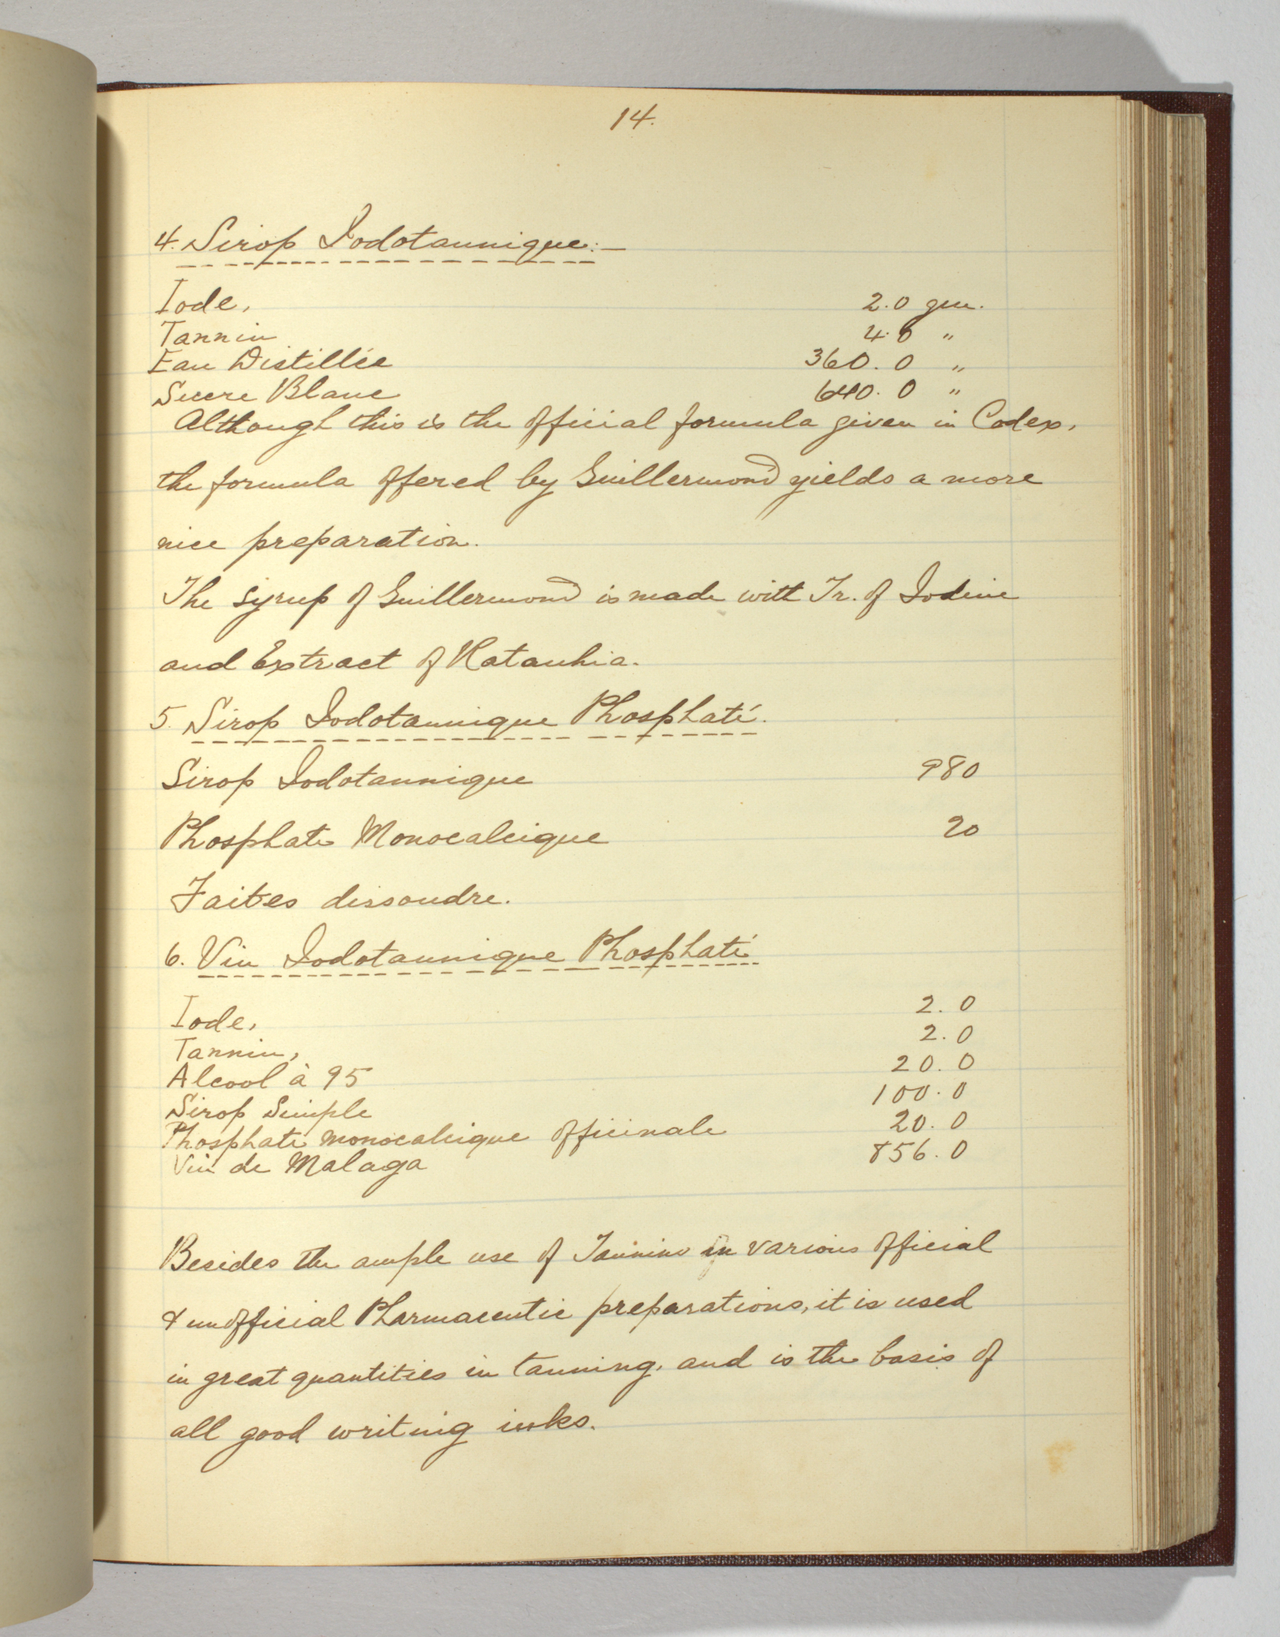 14.
4. Sirop Iodotannique:—
Iode, 2.0 gm.
Tannin 4.0 "
Eau Distillée 360.0 "
Sucre Blanc 640.0 "
Although this is the official formula given in Codex,
the formula offered by Guillermond yields a more
nice preparation.
The syrup of Guillermond is made with Tr. of Iodine
and Extract of Ratanhia.
5. Sirop Iodotannique Phosphaté.
Sirop Iodotannique 980
Phosphate Monocalcique 20
Faites dissoudre.
6. Vin Iodotannique Phosphaté
Iode, 2.0
Tannin, 2.0
Alcool à 95 20.0
Sirop Simple 100.0
Phosphate monocalcique officinale 20.0
Vin de Malaga 856.0
Besides the ample use of Tannins in various official
& unofficial Pharmaceutic preparations, it is used
in great quantities in tanning, and is the basis of
all good writing inks.